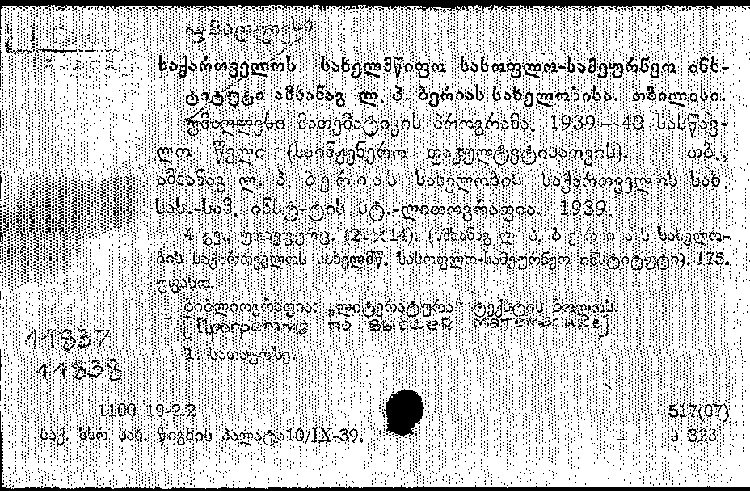 საქართველოს სახელმწიფო სასოფლო-სამეურნეო ინს-
ტიტუტი ამხანაგ ლ. პ. ბერიას სახელობისა. თბილისი.
უმაღლესი მათემატიკის პროგრამა. 1939—40 სასწავ-
ლო წელი (საინჟენერო ფაკულტეტისათვის). თბ.,
ამხანაგ ლ. პ. ბერიას სახელობის საქართველოს სახ.
სას.-სამ. ინსტ-ტის სტ.-ლითოგრაფია. 1939.
4 გვ. უფავფურც. (21×14). (ამხანაგ ლ. პ. ბერიას სახელო-
ბის საქართველოს სახელმწ. სასოფლო-სამეურნეო ინსტიტუტი). 175.
უფასო.
ბიბლიოგრაფია: „ლიტერატურა" ტექსტის ბოლოს.
[Программа по высшей математике]
1. სათაური.
11837
11838
1100 19-2.2 517(07)
საქ. სსრ სახ. წიგნის პალატა 10/IX-39. უ 323